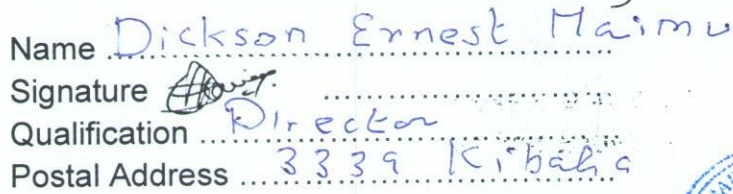 Name Dickson Ernest Maimu
Signature
Qualification Director
Postal Address 3339 Kibaha